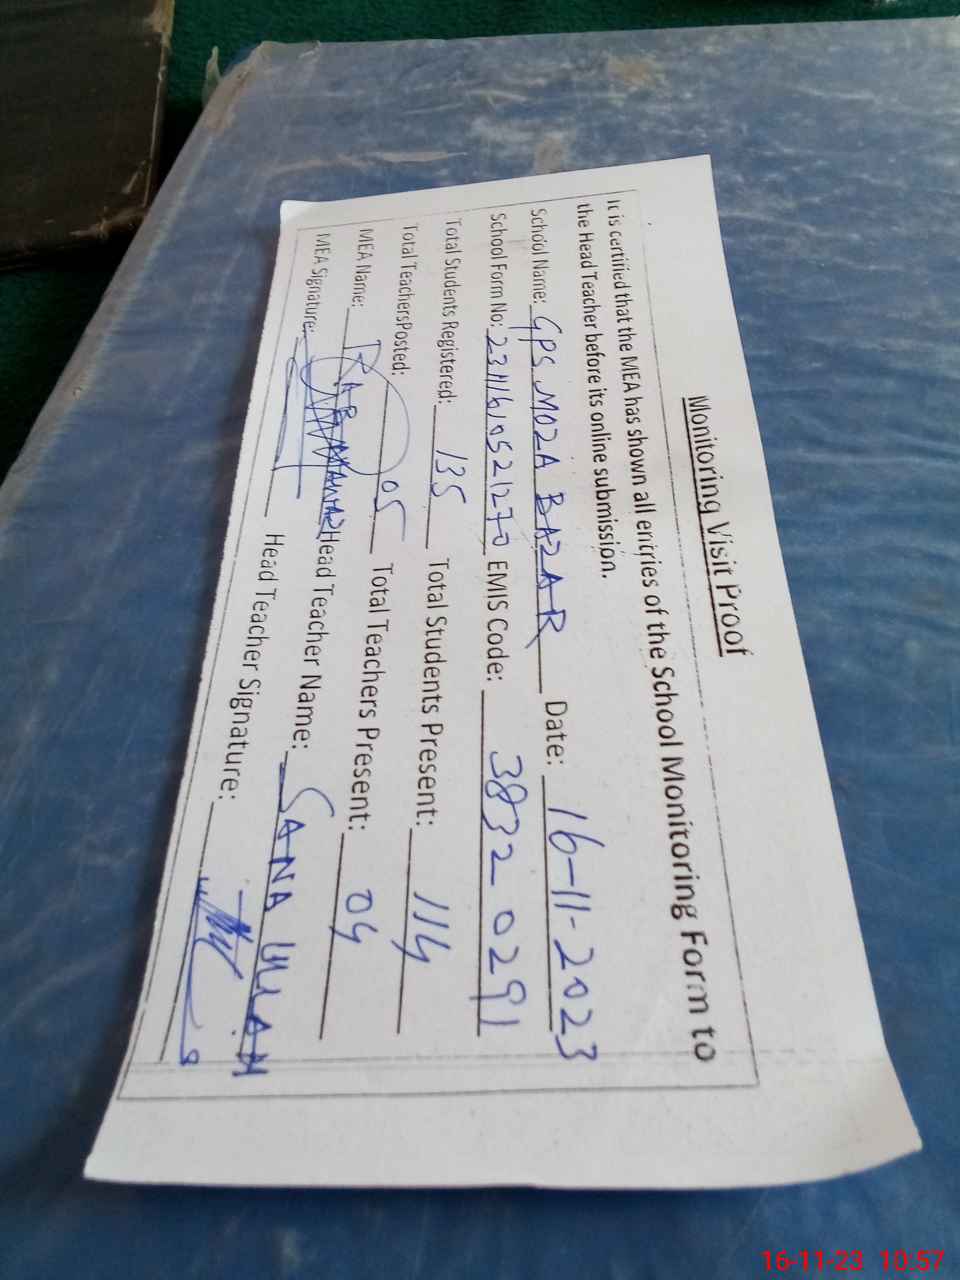 Monitoring Visit Proof
It is certified that the MEA has shown all entries of the School Monitoring Form to
the Head Teacher before its online submission.
School Name: GPS MOZA BAZAR Date: 16-11-2023
School Form No: 23111610521270 EMIS Code: 38320291
Total Students Registered: 135 Total Students Present: 114
Total TeachersPosted: 05 Total Teachers Present: 04
MEA Name: Head Teacher Name: SANA ULLAH
MEA Signature: Head Teacher Signature:
16-11-23 10:57